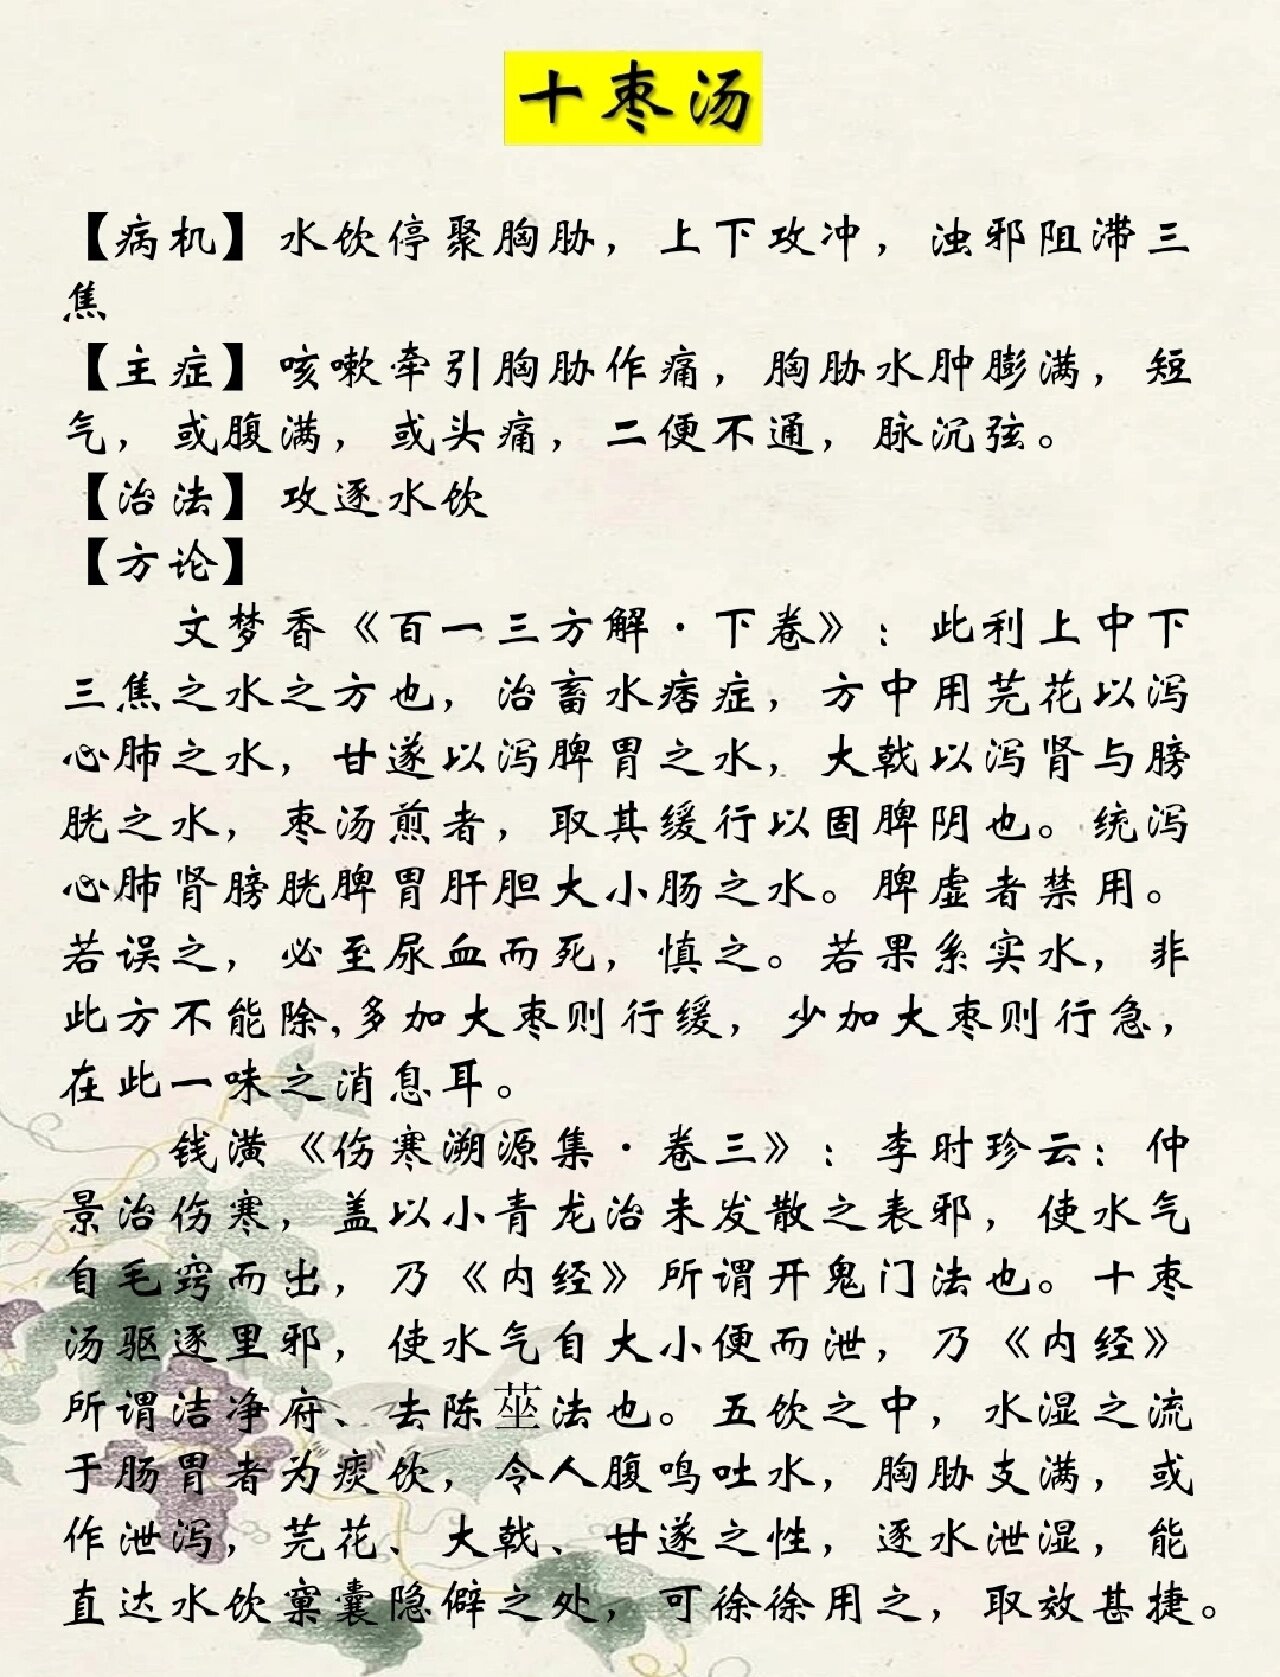 十枣汤
【病机】水饮停聚胸胁，上下攻冲，浊邪阻滞三
焦
【主症】咳嗽牵引胸胁作痛，胸胁水肿膨满，短
气，或腹满，或头痛，二便不通，脉沉弦。
【治法】攻逐水饮
【方论】
文梦香《百一三方解·下卷》：此利上中下
三焦之水之方也，治畜水痞症，方中用芫花以泻
心肺之水，甘遂以泻脾胃之水，大戟以泻肾与膀
胱之水，枣汤煎者，取其缓行以固脾阴也。统泻
心肺肾膀胱脾胃肝胆大小肠之水。脾虚者禁用。
若误之，必至尿血而死，慎之。若果系实水，非
此方不能除,多加大枣则行缓，少加大枣则行急，
在此一味之消息耳。
钱潢《伤寒溯源集·卷三》：李时珍云：仲
景治伤寒，盖以小青龙治未发散之表邪，使水气
自毛窍而出，乃《内经》所谓开鬼门法也。十枣
汤驱逐里邪，使水气自大小便而泄，乃《内经》
所谓洁净府、去陈莝法也。五饮之中，水湿之流
于肠胃者为痰饮，令人腹鸣吐水，胸胁支满，或
作泄泻，芫花、大戟、甘遂之性，逐水泄湿，能
直达水饮窠囊隐僻之处，可徐徐用之，取效甚捷。